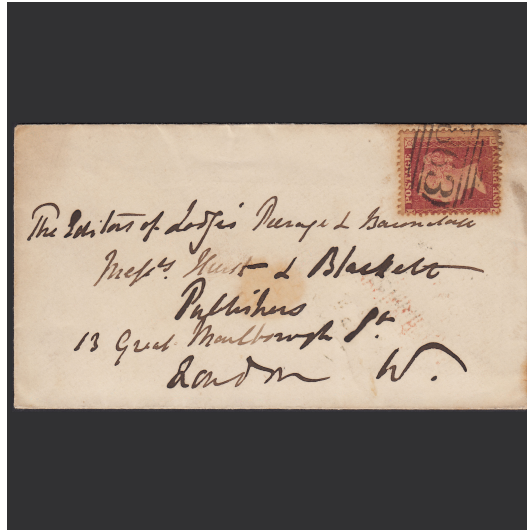 The Editors of Lodge's Peerage & Baronetage
Messrs Hurst & Blackett
Publishers
13 Great Marlborough St.
London W.
POSTAGE